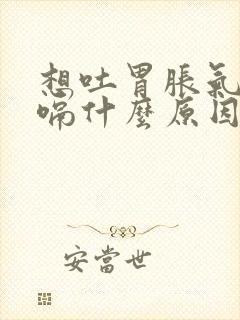 想吐胃脹氣
嗝什麼原因
安當世